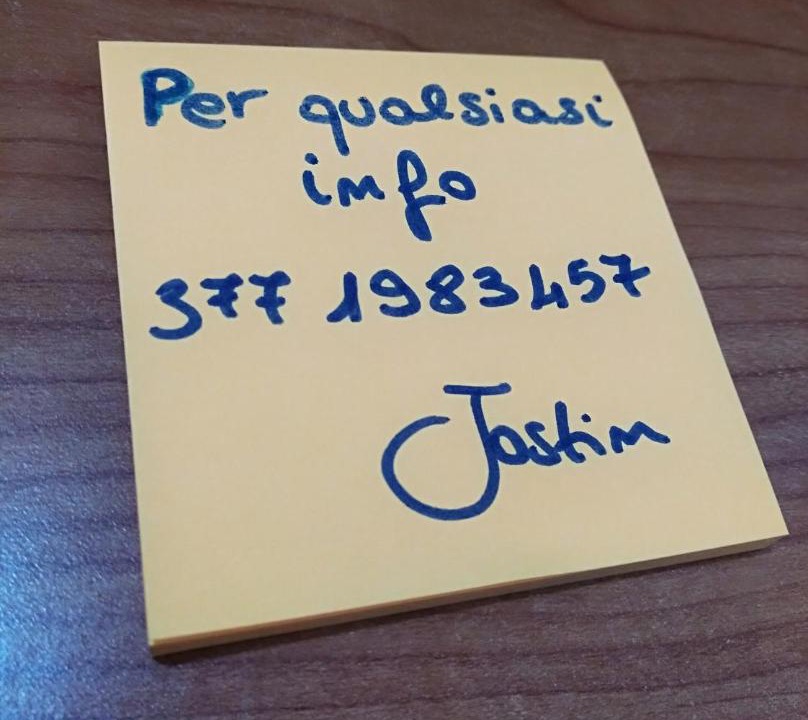 Per qualsiasi
info
377 1983457
Jastin